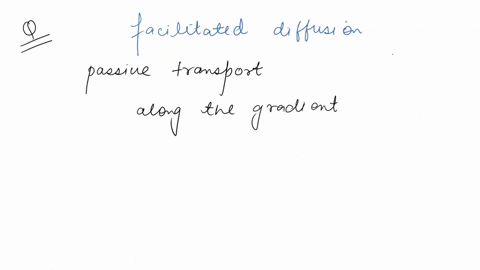 Q facilitated diffusion
passive transport
along the gradient